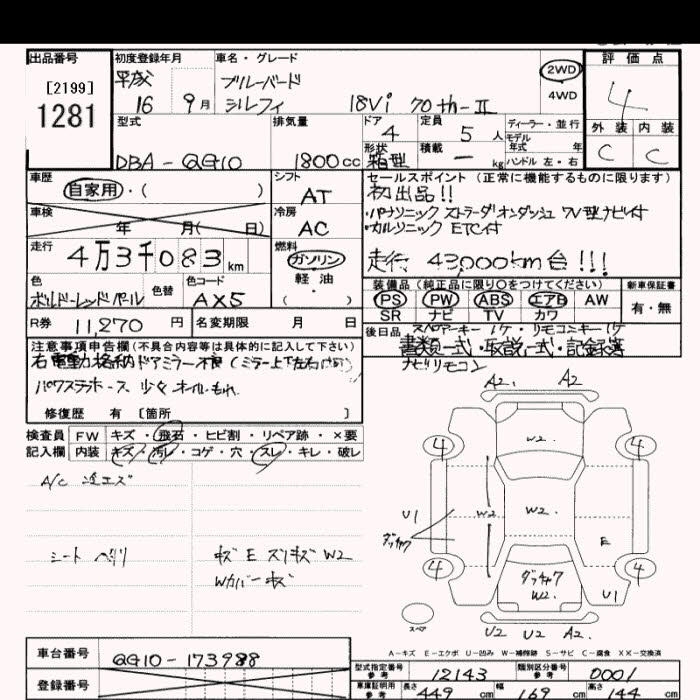 出品番号 初度登録年月 車名・グレード 評価点
[2199] 平成 ブルーバード 2WD 4
1281 16 9月 シルフィ 18Vi 70th-II 4WD
外装 内装
型式 排気量 ドア 定員 ディーラー・並行
4 5人 モデル年式 年 C C
形状 積載 ハンドル 左・右
DBA-QG10 1800cc 箱型 ー kg
車歴 シフト セールスポイント(正常に機能するものに限ります)
自家用・( ) AT 初出品!!
車検 冷房 ・パナソニック ストラーダ オンダッシュ 7V型ナビ付
年 月( 日) AC ・カルソニック ETC付
走行 燃料
4万3千083km ガソリン 走行 43,000km台!!!
軽油
色 色替 色コード ( ) 装備品(純正品に限り○をつけてください) 新車保証書
ボルドーレッドパール AX5 PS PW ABS エアB AW 有・無
SR ナビ TV カワ
R券 11,270円 名変期限 月 日 後日品 スペアーキー1ケ・リモコンキー1ケ
注意事項申告欄(不具合内容等は具体的に記入して下さい) 書類一式・取説一式・記録簿
右電動格納ドアミラー不良(ミラー上下左右 ナビリモコン
パワステホース 少々オイルもれ
修復歴 有 [箇所 ]
検査員 FW キズ・飛石・ヒビ割・リペア跡・×要
記入欄 内装 キズ・汚レ・コゲ・穴・スレ・キレ・破レ
A/C 冷エズ
シート ヘタリ キズ E スリキズ W2
Wカバーキズ
A2. A2
4 W2. 4
U1 W2 W2. E
ダッチャク
4 ダッチャク 4
W2. U1
スペア U2 U2 A2.
A-キズ E-エクボ U-凹み W-補修跡 S-サビ C-腐食 XX-交換済
車台番号 QG10-173988
型式指定番号 参考 12143 類別区分番号 参考 0001
登録番号 車庫証明用 参考 長さ 449cm 幅 169cm 高さ 144cm